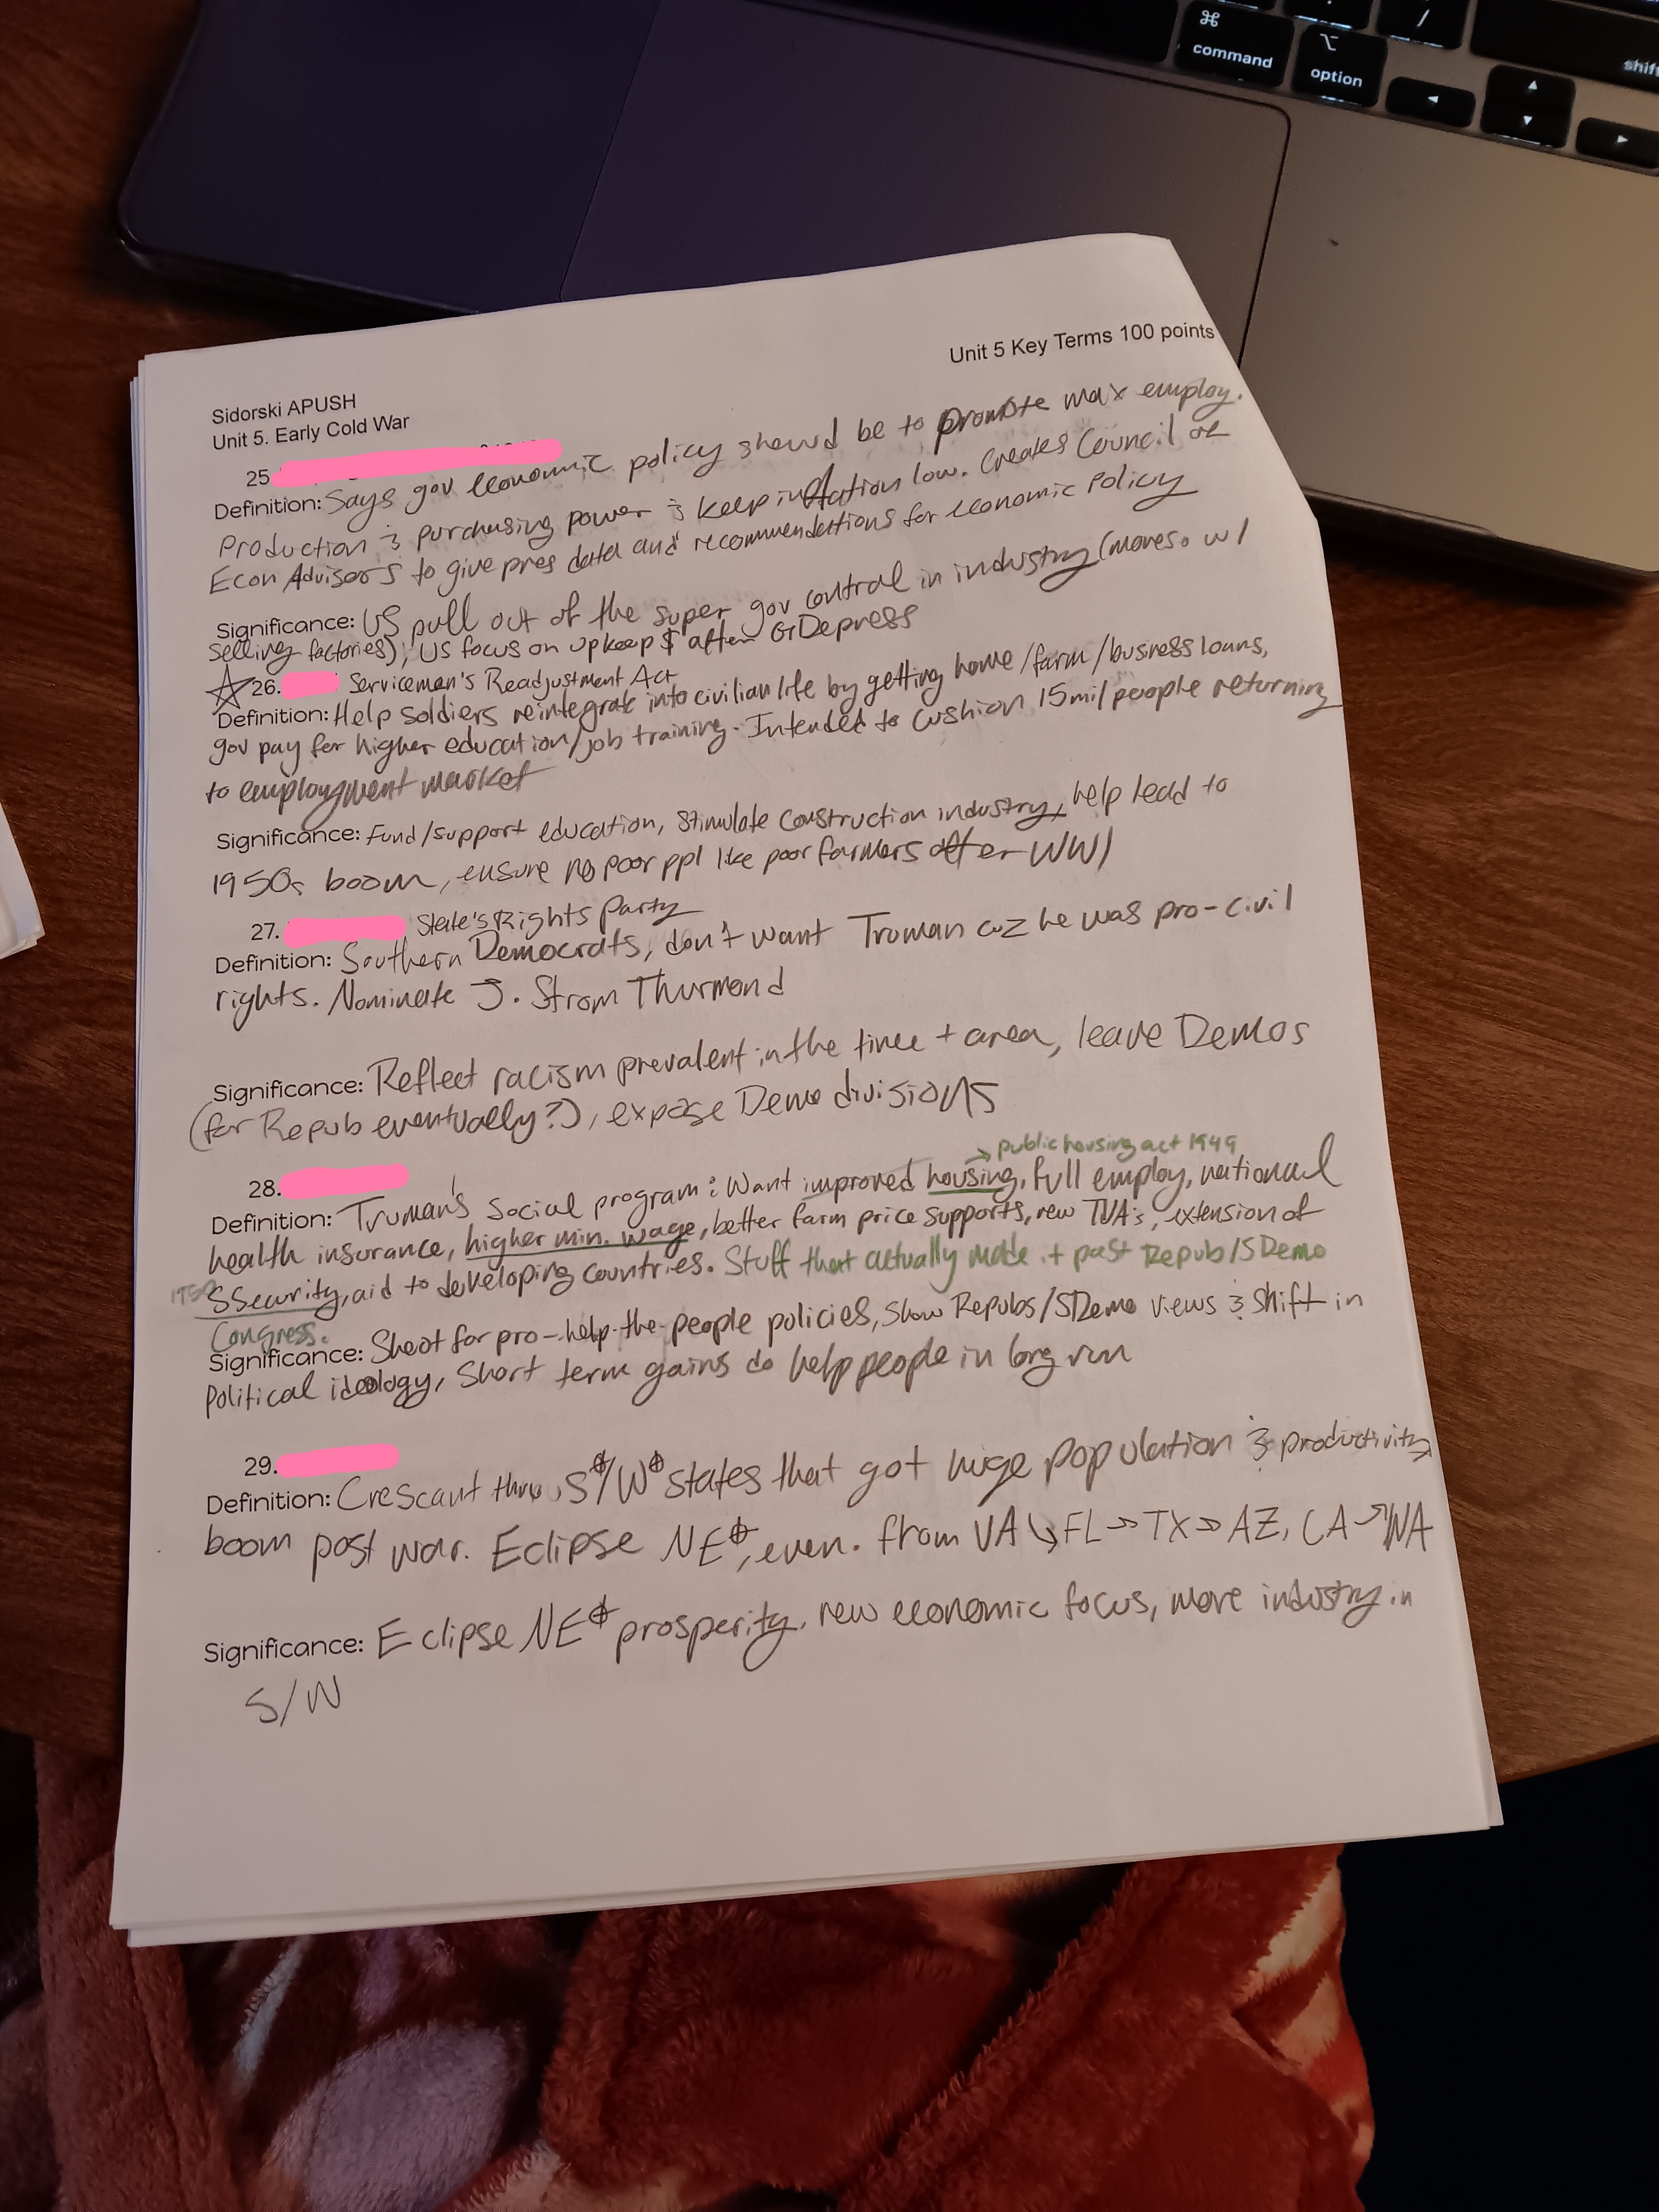 ⌘
command
⌥
option
/
shift
◄
▲
▼
►
Unit 5 Key Terms 100 points
Sidorski APUSH
Unit 5. Early Cold War
25
Definition: Says gov economic policy should be to promote max employ.
Production & purchasing power & keep inflation low. Creates Council of
Econ Advisors to give pres data and recommendations for economic policy
Significance: US pull out of the super gov control in industry (moreso w/
selling factories), US focus on upkeep $ after GrDepress
☆26. Serviceman's Readjustment Act
Definition: Help soldiers reintegrate into civilian life by getting home/farm/business loans,
gov pay for higher education/job training. Intended to cushion 15mil people returning
to employment market
Significance: Fund/support education, stimulate construction industry, help lead to
1950s boom, ensure no poor ppl like poor farmers after WWI
27. State's Rights Party
Definition: Southern Democrats, don't want Truman cuz he was pro-civil
rights. Nominate J. Strom Thurmond
Significance: Reflect racism prevalent in the time + area, leave Demos
(for Repub eventually?), expose Demo divisions
→ public housing act 1949
28.
Definition: Truman's social program: Want improved housing, full employ, national
health insurance, higher min. wage, better farm price supports, new TVA's, extension of
1950 SSecurity, aid to developing countries. Stuff that actually made it past Repub/SDemo
Congress.
Significance: Shoot for pro-help-the-people policies, show Repubs/SDemo views & shift in
political ideology, Short term gains do help people in long run
29.
Definition: Crescant thru S/W states that got huge population & productivity
boom post war. Eclipse NE, even. from VA ↳ FL → TX → AZ, CA → WA
Significance: Eclipse NE prosperity, new economic focus, more industry in
S/W